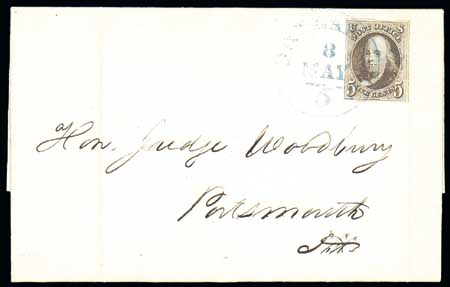 8
MAY
5
U S
POST OFFICE
5 FIVE CENTS 5
Hon. Judge Woodbury
Portsmouth